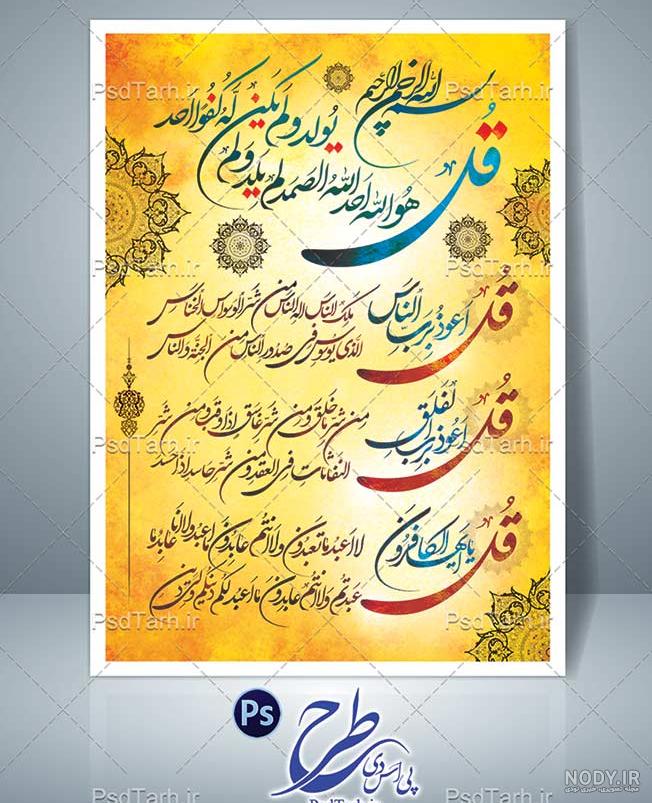 بسم الله الرحمن الرحیم
قُل
هُوَ الله اَحَد اللهُ الصَمَد لَم یَلِد وَ لَم
یُولَد وَ لَم یَکُن لَهُ کُفُوًا اَحَد
قُل
اَعوذُ بِرَبِ النّاس
مَلِک الناس اِله الناس مِن شَرِ الوَسواس الخَناس
الَّذی یُوَسوِسُ فی صُدور الناس مِنَ الجِنَّةِ وَ الناس
قُل
اَعوذُ بِرَبِ الفَلَق
مِن شَرِ ما خَلَق وَ مِن شَرِ غاسِق اِذا وَقَب وَ مِن شَرِ
النَفّاثات فِی العُقَد وَ مِن شَرِ حاسِد اِذا حَسَد
قُل
یا اَیها الکافِرون
لا اَعبُدُ ما تَعبُدون وَ لا اَنتُم عابِدون ما اَعبُد وَ لا اَنا عابِد ما
عَبَدتُم وَ لا اَنتُم عابِدون ما اَعبُد لَکُم دینُکُم وَلِیَ دین
PsdTarh.ir
PsdTarh.ir
PsdTarh.ir
PsdTarh.ir
PsdTarh.ir
PsdTarh.ir
PsdTarh.ir
PsdTarh.ir
Ps
طرح
پی اس دی
PsdTarh.ir
NODY.IR
مجله تصویری، خبری نودی